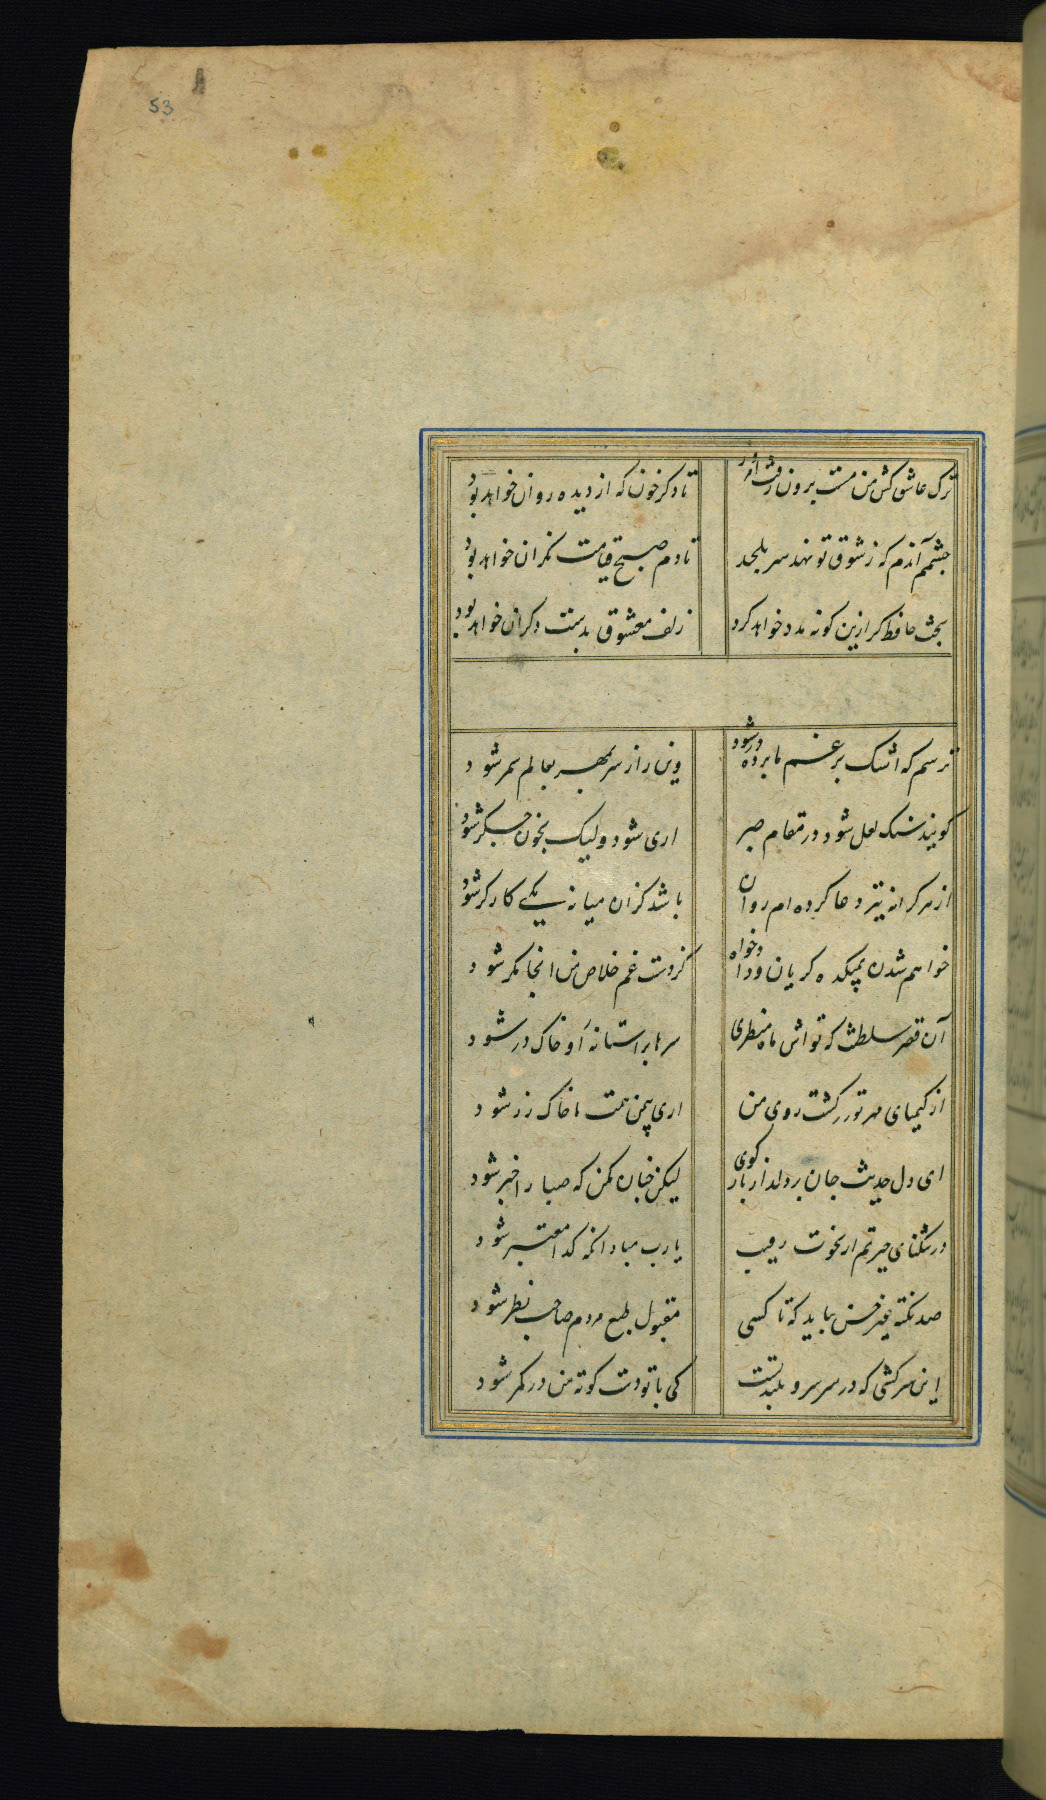 53
ترک عاشق کش من مست برون رفت امروز تا دکر خون که از دیده روان خواهد بود
چشمم آندم که ز شوق تو نهد سر بلحد تا دم صبح قیامت نکران خواهد بود
بخت حافظ کر ازین کونه مدد خواهد کرد زلف معشوق بدست دکران خواهد بود
ترسم که اشک بر غم ما پرده در شود وین راز سر بمهر بعالم سمر شود
کویند سنک لعل شود در مقام صبر اری شود ولیک بخون جکر شود
از هر کرانه تیر دعا کرده ام روان باشد کزان میانه یکی کارکر شود
خواهم شدن بمیکده کریان و دادخواه کز دست غم خلاص من انجا مکر شود
آن قصر سلطنت که تواش ماه منظری سرها بر استانهٔ او خاک در شود
از کیمیای مهر تو زر کشت روی من اری بیمن همت ما خاک زر شود
ای دل حدیث جان بر دلدار باز کوی لیکن چنان مکن که صبا را خبر شود
در تنکنای حیرتم از نخوت رقیب یارب مباد انکه کدا معتبر شود
صد نکته غیر حسن بباید که تا کسی مقبول طبع مردم صاحب نظر شود
این سرکشی که در سر سرو بلند تست کی با تو دست کوته من در کمر شود